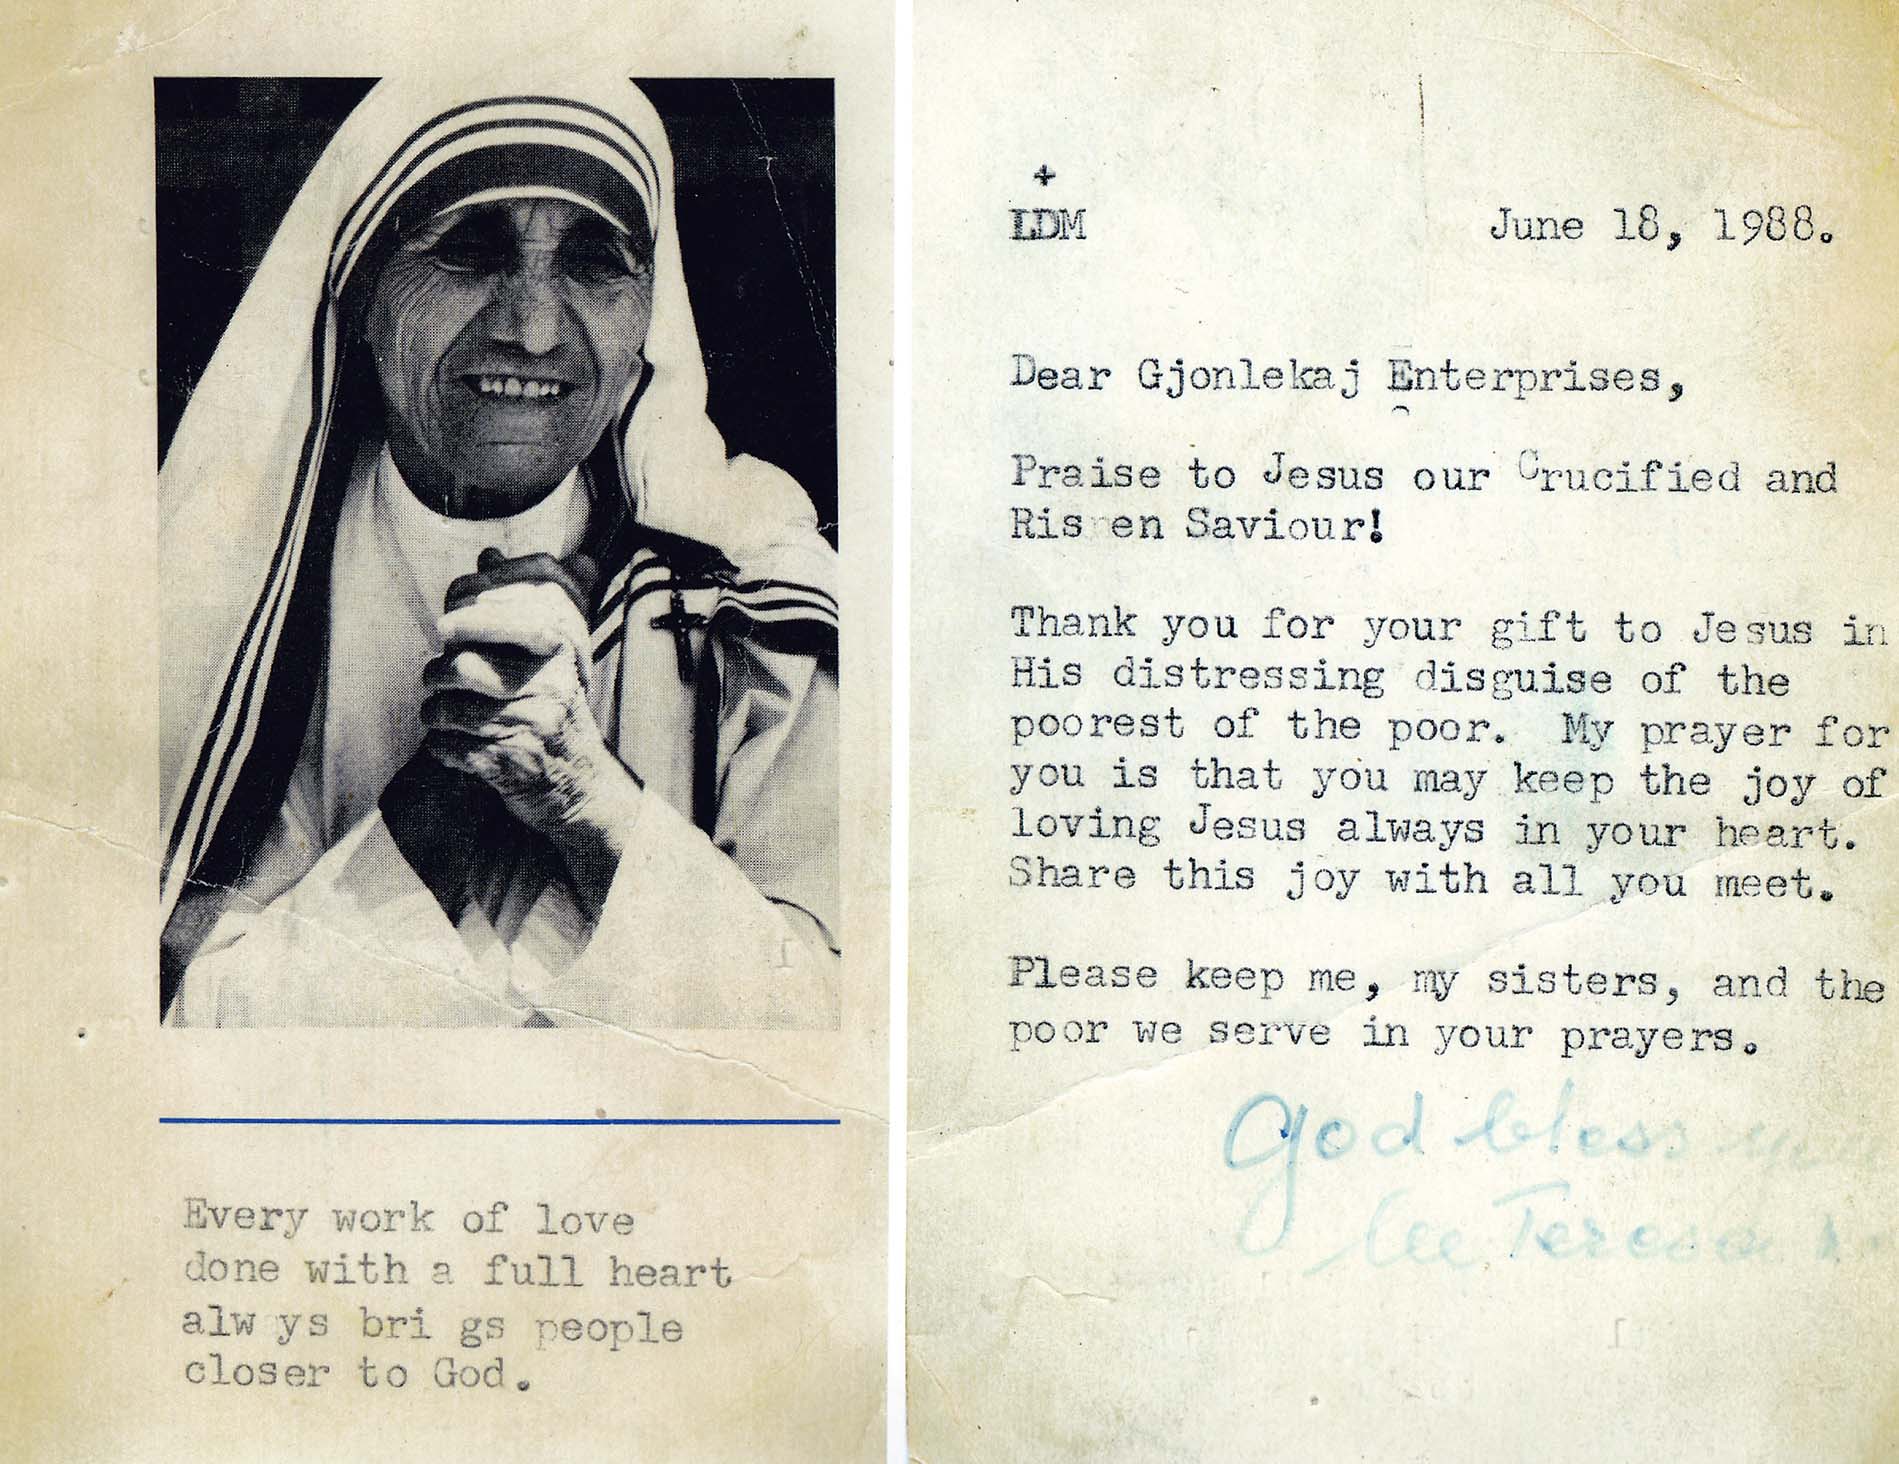 Every work of love
done with a full heart
alw ys bri gs people
closer to God.
+
LDM June 18, 1988.
Dear Gjonlekaj Enterprises,
Praise to Jesus our Crucified and
Ris en Saviour!
Thank you for your gift to Jesus in
His distressing disguise of the
poorest of the poor. My prayer for
you is that you may keep the joy of
loving Jesus always in your heart.
Share this joy with all you meet.
Please keep me, my sisters, and the
poor we serve in your prayers.
God bless you
Teresa